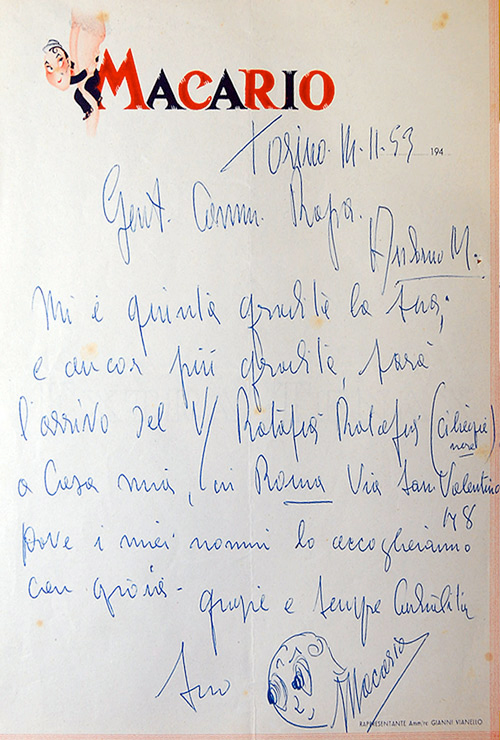 MACARIO
Torino. 14.11.53 194
Gent. Comm. Rapa.
Andorno M.
Mi è giunta gradita la sua;
e ancor più gradita, sarà
l'arrivo del V/ Ratafià Ratafià (ciliegie nere)
a Casa mia, in Roma Via San Valentino
18
Dove i miei nonni lo accoglieranno
con gioia - grazie e sempre Cordialità
Suo Macario
RAPPRESENTANTE Amm/re GIANNI VIANELLO